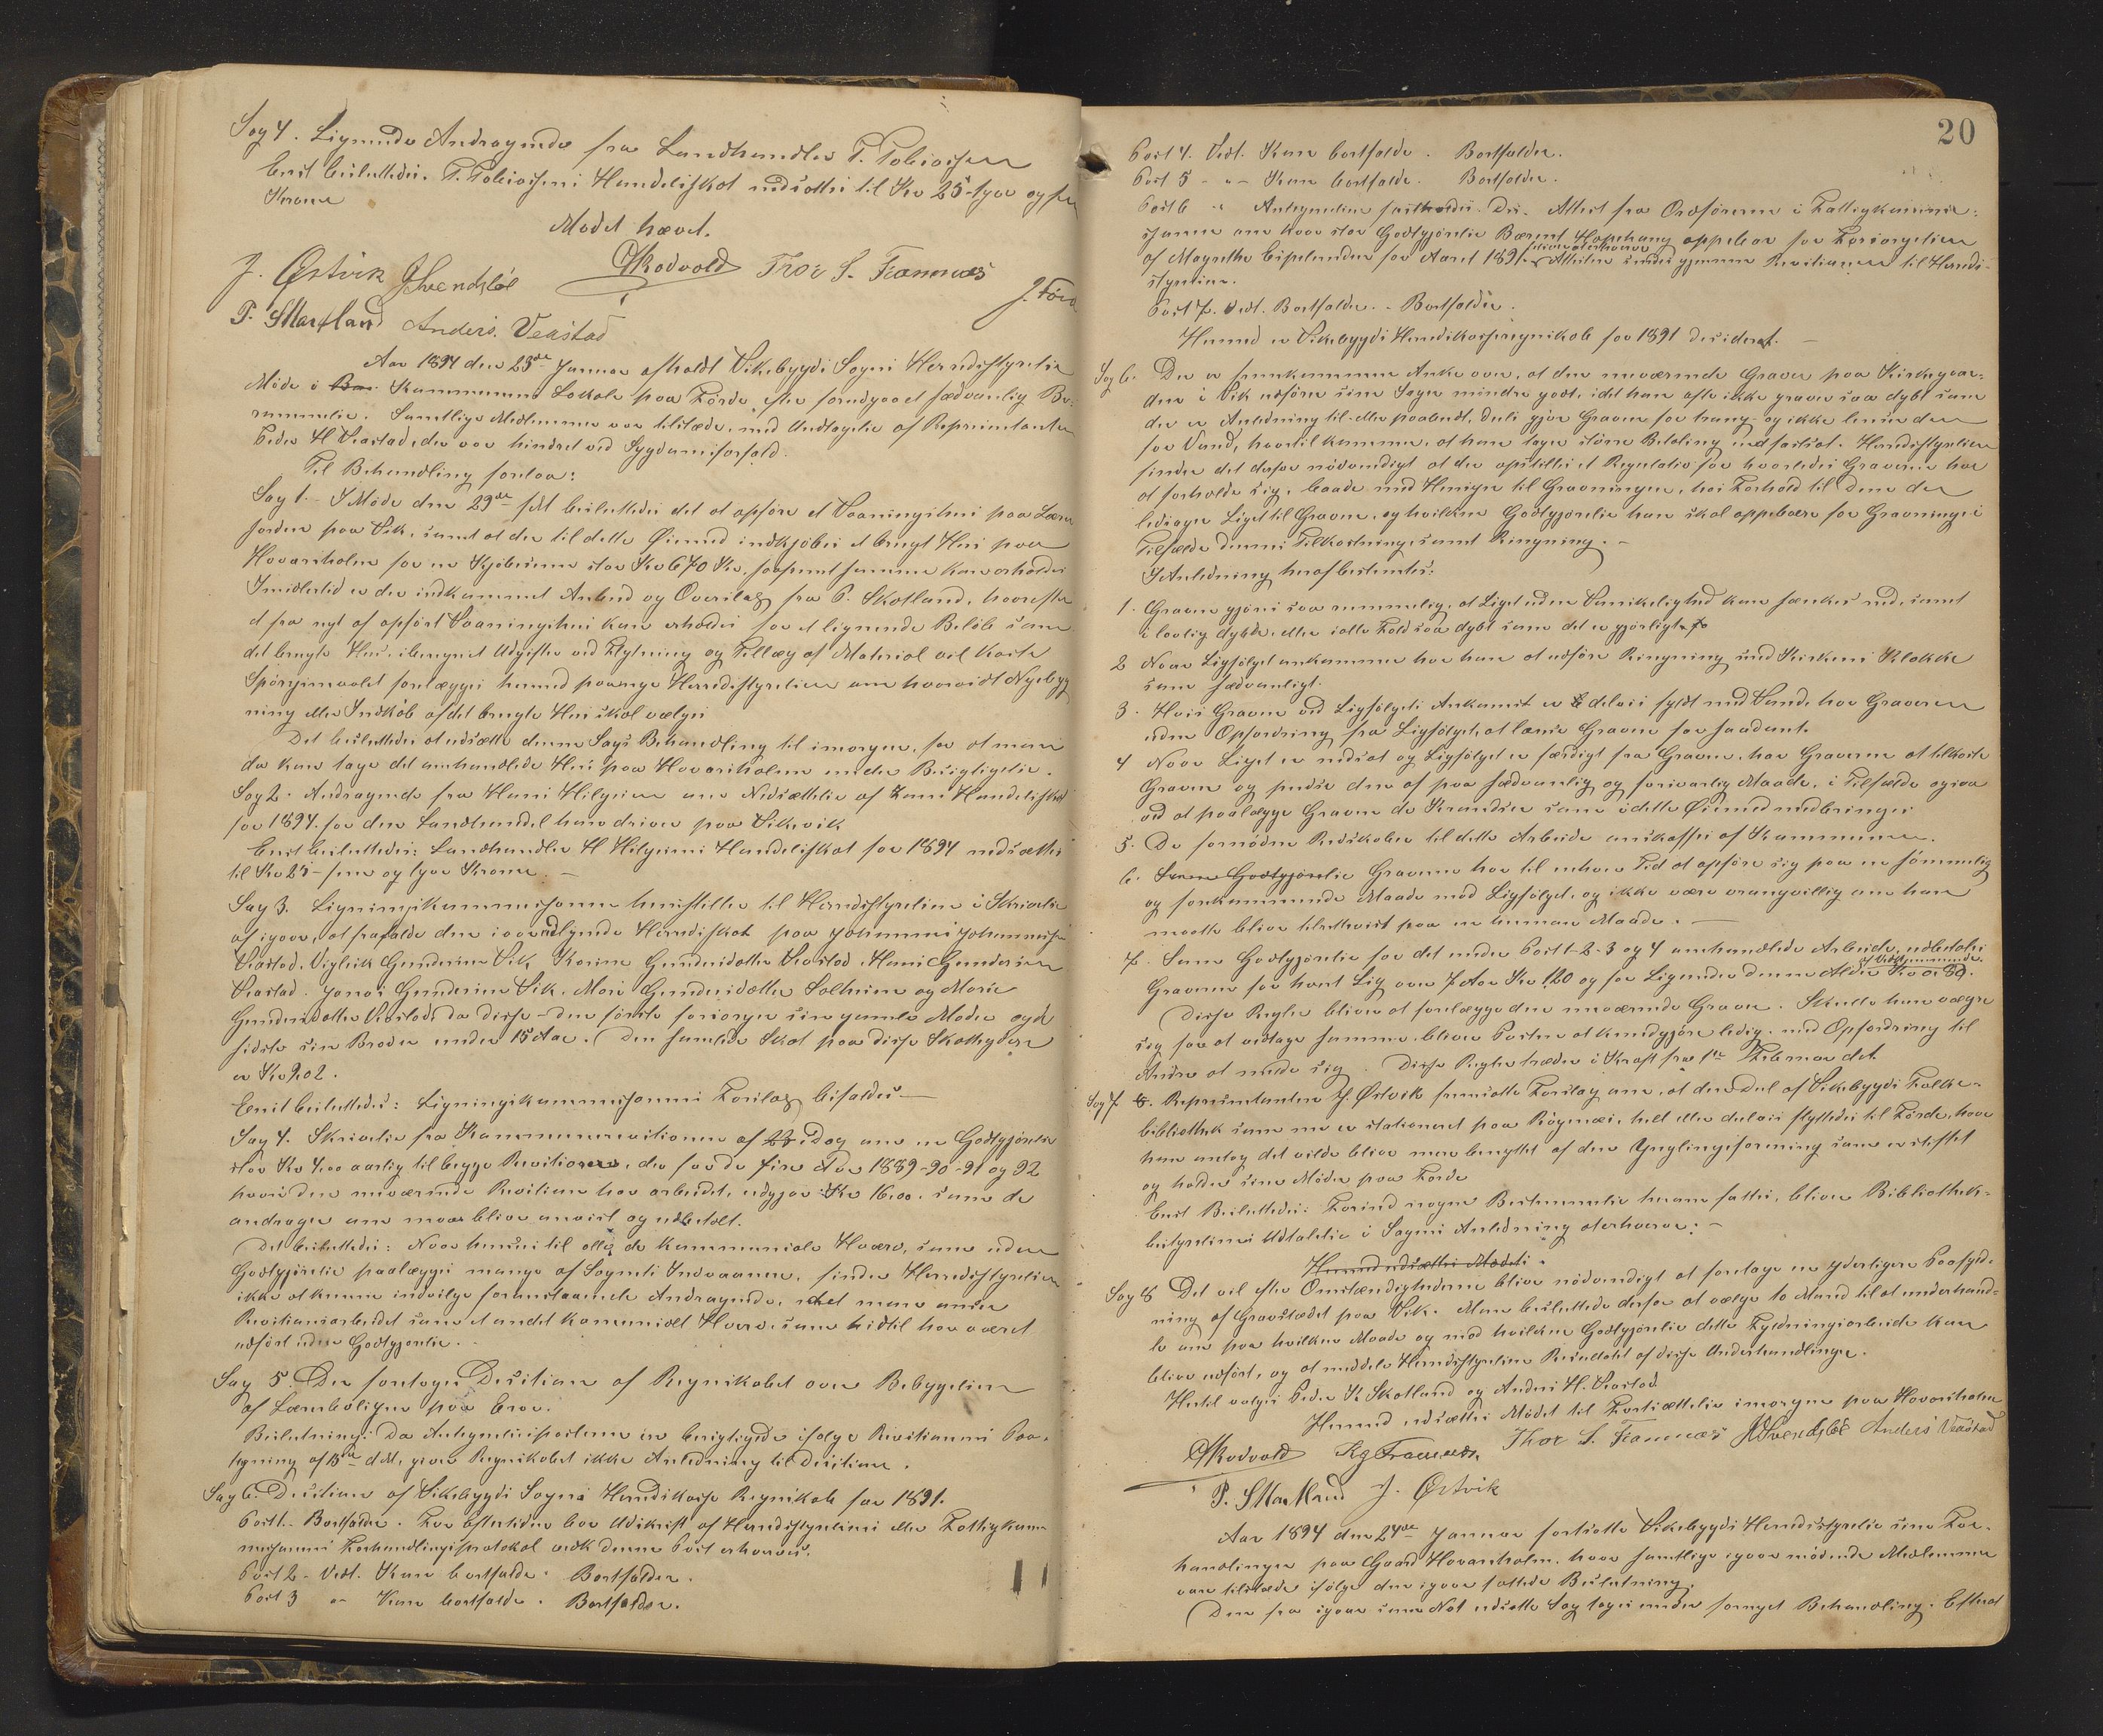 Sag 4. Lignende Andragende fra Landhandler T. Tobiassen
Enst besluttedes. T. Tobiassens Handelsskat nedsættes til Kr 25 - tyve og fem
Kroner
Mødet hævet.
J. Østvik JSvendsbøe OSkodvold Thor S. Framnæs
P. SMarkland Anders. Veastad
Aar 1894 den 23de Januar afholdt Vikebygds Sogns Herredsstyrelse
Møde i Kommunens Lokale paa Førde efter foregaaet sædvanlig Be-
rammelse. Samtlige Medlemmer var tilstede, med Undtagelse af Repræsentanten
Peder H Veastad, der var hindret ved Sygdomsforfald.
Til Behandling forelaa:
Sag 1. I Møde den 29de besluttedes det at opføre et Vaaningshus paa Lærer-
jorden paa Vik, samt at der til dette Øiemed indkjøbes et brugt Hus paa
Hovarsholm for en Kjøbesum stor Kr 670 Kr, saafremt samme kan erholdes
Imidlertid er der indkommet Anbud og Overslag fra P. Skotland, hvorefter
et fra nyt af opført Vaaningshus kan erholdes for et lignende Beløb som
det brugte Hus, iberegnet Udgifter ved Flytning og Tillæg af Material vil koste
Spørgsmaalet forelægges herved paanye Herredsstyrelsen om hvorvidt Nybyg-
ning eller Indkøb af det brugte Hus skal vælges
Det besluttedes at udsætte denne Sags Behandling til imorgen, for at man
da kan tage det omhandlede Hus paa Hovarsholm under Besigtigelse.
Sag 2. Andragende fra Hans Hilgesen om Nedsættelse af hans Handelsskat
for 1894 for den Landhandel han driver paa Vikevik
Enst besluttedes: Landhandler H Hilgesens Handelsskat for 1894 nedsættes
til Kr 25 - fem og tyve Kroner. -
Sag 3. Ligningskommissionen henstiller til Herredsstyrelsen i Skrivelse
af igaar, at frafalde den iværendlignede Herredsskat paa Johannes Johannessen
Veastad, Vigleik Gundersen Vik, Karine Gundersdatter Veastad, Hans Gundersen
Veastad. Jonas Gundersen Vik. Mari Gundersdatter Solheim og Marie
Gundersdatter Veastad, da disse - den første forsørger sin gamle Moder og de
sidste sin Broder under 15 Aar. Den samlede Skat paa disse Skatteydere
er Kr 9.02.
Enst besluttedes: Ligningskommissionens Forslag bifaldes -
Sag 4. Skrivelse fra Kommunerevisionen af idag om en Godtgjørelse
stor Kr 4.00 aarlig til begge Revisorer, der for de fire Aar 1889-90-91 og 92
hvori den nuværende Revision har arbeidet, udgjør Kr 16.00. som de
andrager om maa blive anvist og udbetalt.
Det besluttedes: Naar hensees til alle de kommunale Hværv, som uden
Godtgjørelse paalægges mange af Sognets Indvaanere, finder Herredsstyrelsen
ikke at kunne indvilge foranstaaende Andragende, idet man anser
Revisionsarbeidet som et andet kommunalt Hværv, som hidtil har været
udført uden Godtgjørelse.
Sag 5. Der foretoges Decision af Regnskabet over Bebyggelsen
af Lærerboligen paa Eroe.
Beslutning: Da Antegnelsesposterne er besvarede ifølge Revisionens Paa-
tegning af 13de ds, giver Regnskabet ikke Anledning til Decision.
Sag 6. Decision af Vikebygds Sogns Herredskasse Regnskab for 1891.
Post 1. Bortfalder. For Eftertiden bør Udskrift af Herredsstyrelsens eller Fattigkom-
missionens Forhandlingsprotokol vedk denne Post erhverves.
Post 2 - Vedt. Kan bortfalde. Bortfalder.
Post 3 " Kan bortfalde. Bortfalder.
20
Post 4. Vedt. Kan bortfalde. Bortfalder.
Post 5 - " - Kan bortfalde. Bortfalder.
Post 6 " Antegnelsen fastholdes. Des. Attest fra Ordføreren i Fattigkommis-
sionen om hvor stor Godtgjørelse Bærent Hopehaug oppebar for Forsørgelsen
af Magrethe Espelunden for Aaret 1891 bliver at erhverve. Attesten sendes gjennem Revisionen til Herreds-
styrelsen.
Post 7. Vedt. Bortfalder. - Bortfalder.
Hermed er Vikebygds Herredskasseregnskab for 1891 decideret. -
Sag 6. Der er fremkommen Anke over, at den nuværende Graver paa Kirkegaar-
den i Vik udfører sine Sager mindre godt, idet han ofte ikke graver saa dybt som
der er Anledning til eller paabudt, dels gjør Graven for trang og ikke lænser den
for Vand, hvortil kommer, at han tager større Betaling end fastsat. Herredsstyrelsen
finder det derfor nødvendigt at der opstilles et Regulativ for hvorledes Graveren har
at forholde sig, baade med Hensyn til Gravningen, hans Forhold til dem der
ledsager Liget til Graven, og hvilken Godtgjørelse han skal oppebære for Gravningen i
Tilfælde dennes Tilkastning samt Ringning. -
I Anledning heraf bestemtes:
1. Graven gjøres saa rummelig, at Liget uden Vanskelighed kan sænkes ned, samt
i lovlig dybde, eller i alle Fald saa dybt som det er gjørligt.
2 Naar Ligfølget ankommer har han at udføre Ringning med Kirkens Klokke
som sædvanligt.
3. Hvis Graven ved Ligfølgets Ankomst er delvis fyldt med Vand, har Graveren
uden Opfordring fra Ligfølget, at lænse Graven for saadant.
4 Naar Liget er nedsat og Ligfølget er færdigt fra Graven, har Graveren at tilkaste
Graven og pudse den af paa sædvanlig og forsvarlig Maade, i Tilfælde ogsaa
ved at paalægge Graven de Krandse som i dette Øiemed medbringes
5. De fornødne Redskaber til dette Arbeide anskaffes af Kommunen.
6. Som Godtgjørelse Graveren har til enhver Tid at opføre sig paa en sømmelig
og forekommende Maade mod Ligfølget, og ikke være vrangvillig om han
maatte blive tilrettevist paa en human Maade. -
7. Som Godtgjørelse for det under Post 1-2-3 og 4 omhandlede Arbeide, udbetales
Graveren for hvert Lig over 7 Aar Kr 1.20 og for Lig under denne Alder Kr 0.80.
Disse Regler bliver at forelægge den nuværende Graver. Skulde han vægre
sig for at vedtage samme, bliver Posten at kundgjøre ledig, med Opfordring til
Andre at melde sig. Disse Regler træder i Kraft fra 1ste Februar det
Sag 7. Repræsentanten J. Østvik fremsatte Forslag om, at den Del af Vikebygds Folke-
bibliothek som nu er stationeret paa Røgenæs, helt eller delvis flyttedes til Førde, hvor
han antog det vilde blive mere benyttet af den Ynglingeforening som er stiftet
og holder sine Møder paa Førde
Enst Besluttedes: Forind nogen Bestemmelse herom fattes, bliver Bibliothek-
bestyrelsens Udtalelse i Sagens Anledning at erhverve: -
Hermed udsættes Mødet.
Sag 8 Det vil efter Omstændighederne blive nødvendigt at foretage en yderligere Paafyld-
ning af Gravstedet paa Vik. Man besluttede derfor at vælge to Mænd til at underhand-
le om paa hvilken Maade og mod hvilken Godtgjørelse dette Fyldningsarbeide kan
blive udført, og at meddele Herredsstyrelsen Resultatet af disse Underhandlinger.
Hertil valgtes Peder K. Skotland og Anders H. Veastad
Hermed udsættes Mødet til Fortsættelse imorgen paa Hovarsholm
OSkodvold Rg Framnæs Thor S. Framnæs JSvendsbøe Anders Veastad
P. SMarkland J. Østvik
Aar 1894 den 24de Januar fortsatte Vikebygds Herredsstyrelse sine For-
handlinger paa Gaard Hovarsholm. hvor samtlige igaar mødende Medlemmer
var tilstede ifølge den igaar fattede Beslutning.
Den fra igaar som No 1 udsatte Sag toges under fornyet Behandling. Efterat